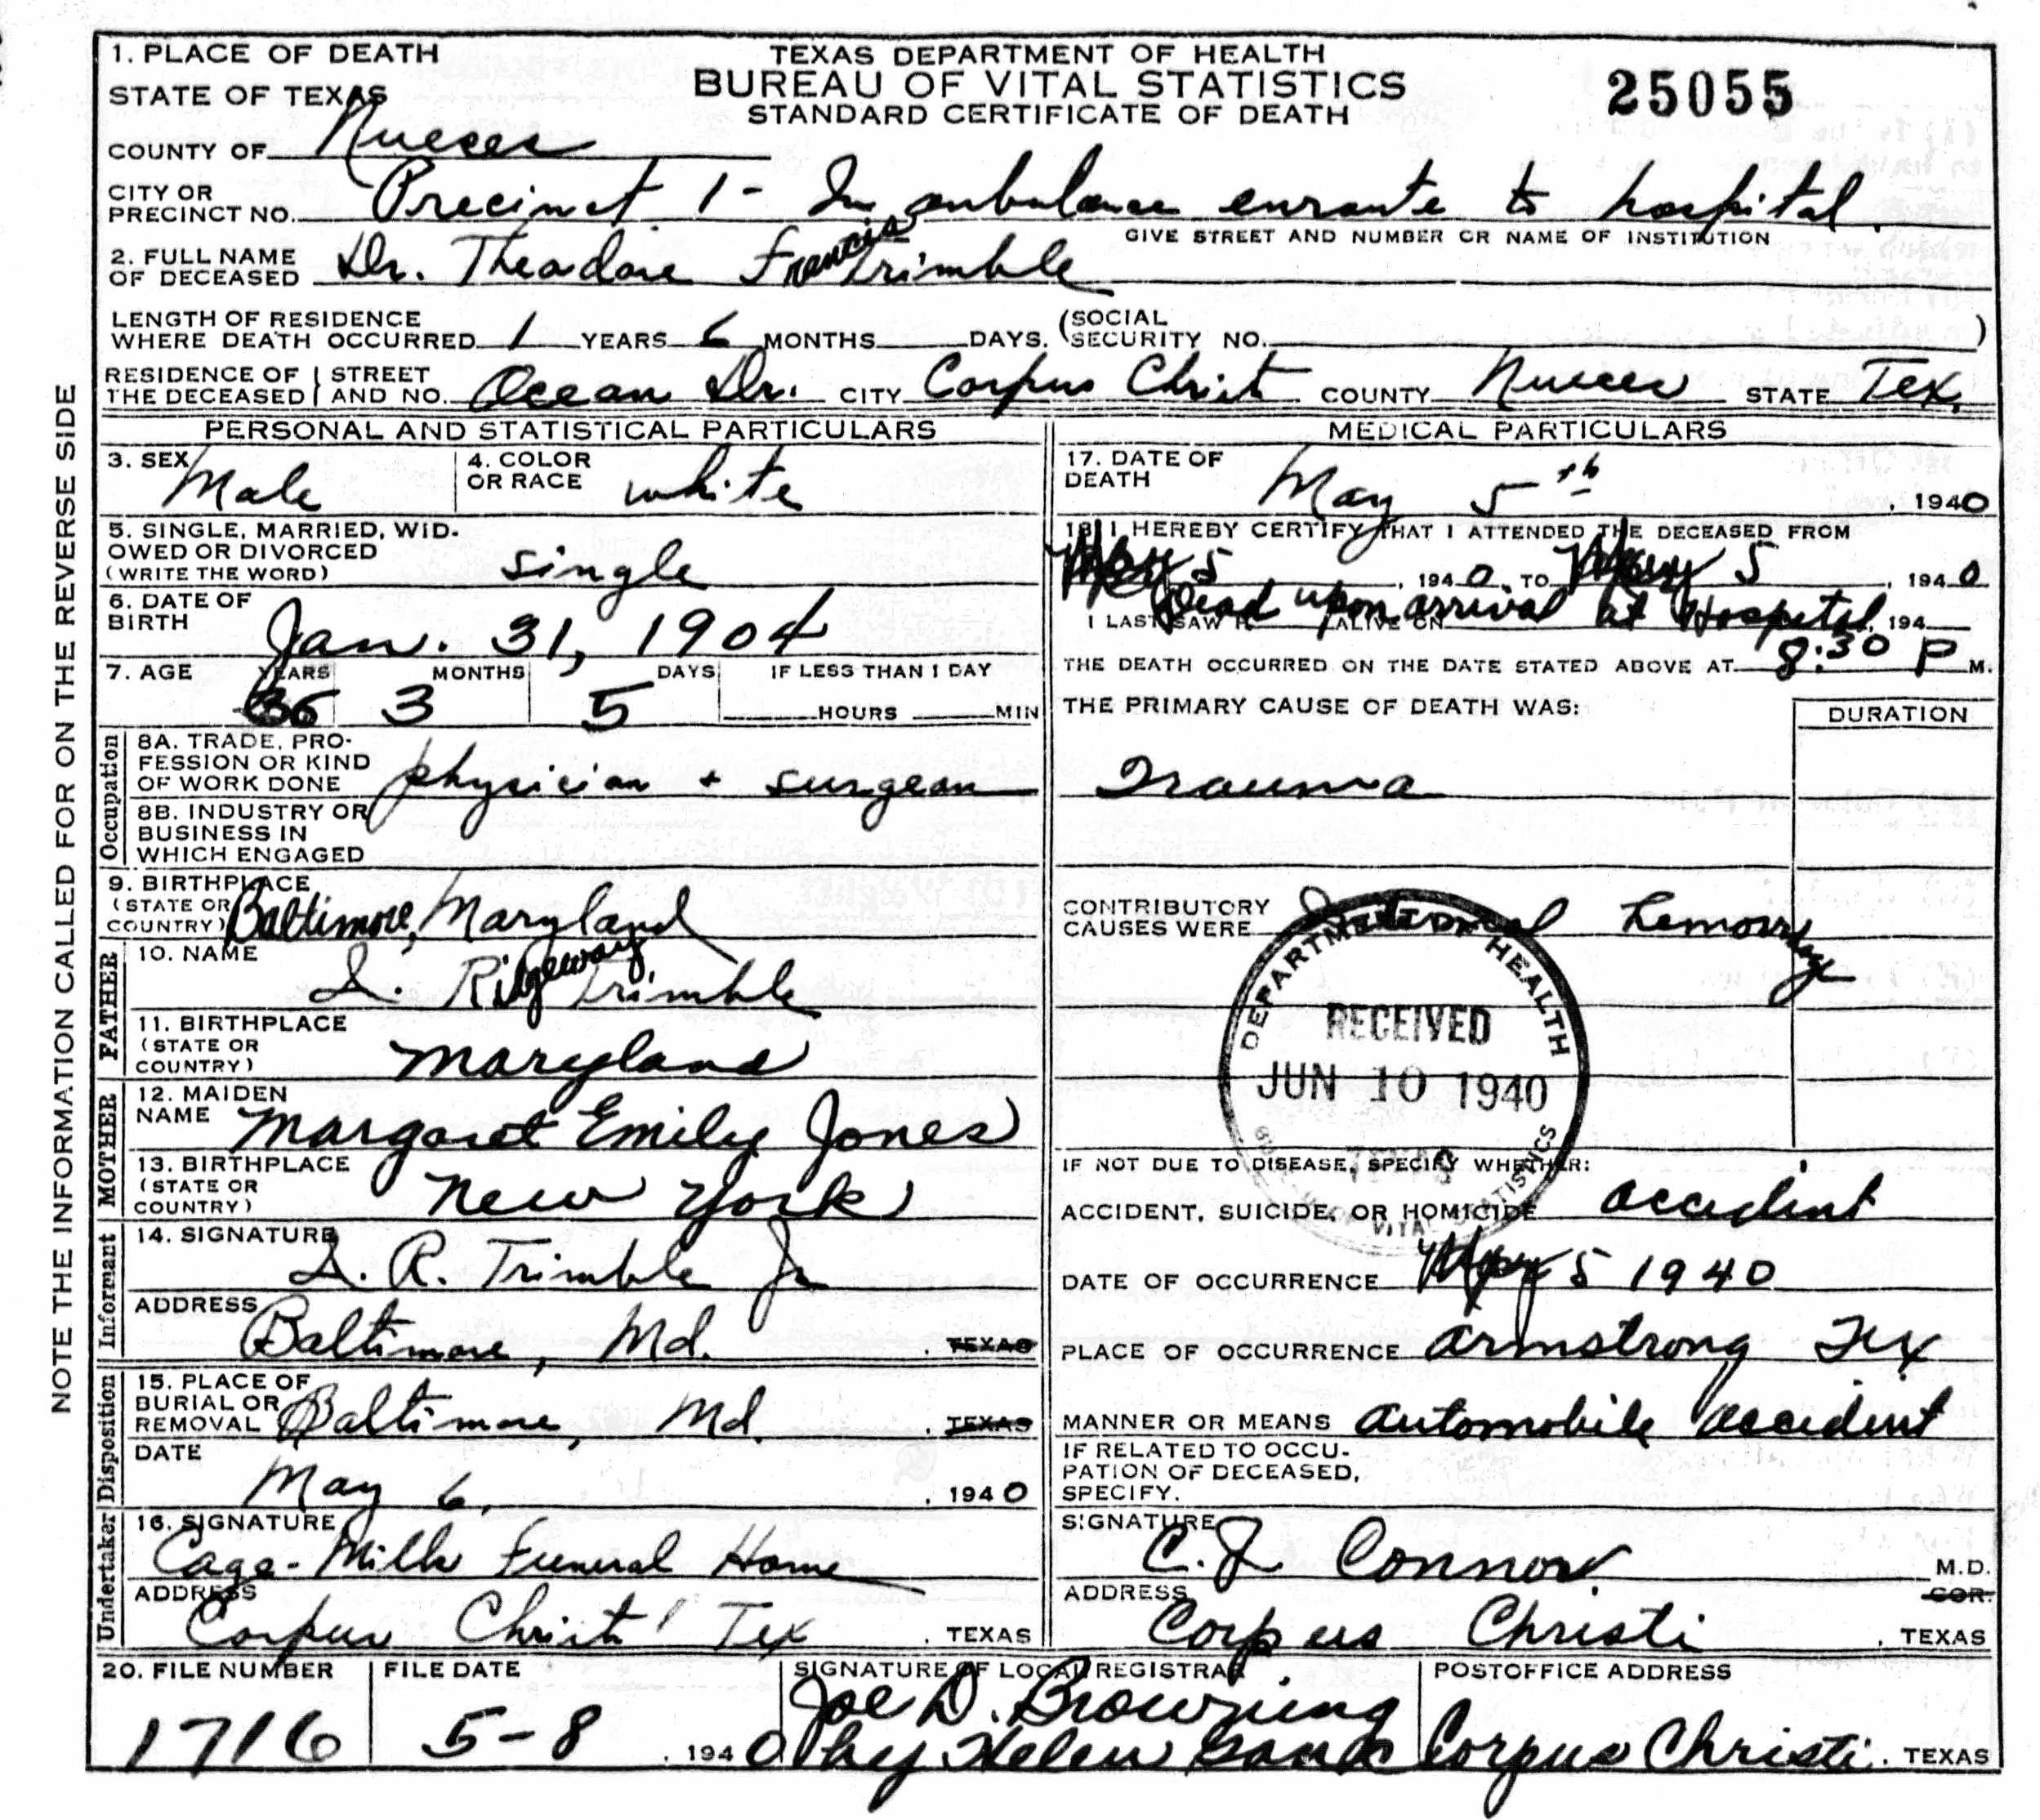 1. PLACE OF DEATH
TEXAS DEPARTMENT OF HEALTH
BUREAU OF VITAL STATISTICS
STANDARD CERTIFICATE OF DEATH
25055
STATE OF TEXAS
COUNTY OF Nueces
CITY OR PRECINCT NO. Precinct 1 - In ambulance enroute to hospital
GIVE STREET AND NUMBER OR NAME OF INSTITUTION
2. FULL NAME OF DECEASED Dr. Theodore Francis Trimble
LENGTH OF RESIDENCE WHERE DEATH OCCURRED 1 YEARS 6 MONTHS DAYS. (SOCIAL SECURITY NO. )
RESIDENCE OF THE DECEASED STREET AND NO. Ocean Dr. CITY Corpus Christi COUNTY Nueces STATE Tex.
PERSONAL AND STATISTICAL PARTICULARS
3. SEX Male
4. COLOR OR RACE white
5. SINGLE, MARRIED, WIDOWED OR DIVORCED
(WRITE THE WORD) single
6. DATE OF BIRTH Jan. 31, 1904
7. AGE YEARS 36 MONTHS 3 DAYS 5 IF LESS THAN 1 DAY
HOURS MIN
Occupation
8A. TRADE, PROFESSION OR KIND OF WORK DONE physician + surgeon
8B. INDUSTRY OR BUSINESS IN WHICH ENGAGED
9. BIRTHPLACE (STATE OR COUNTRY) Baltimore, Maryland
FATHER
10. NAME I. Ridgeway Trimble
11. BIRTHPLACE (STATE OR COUNTRY) Maryland
MOTHER
12. MAIDEN NAME Margaret Emily Jones
13. BIRTHPLACE (STATE OR COUNTRY) New York
Informant
14. SIGNATURE I. R. Trimble Jr
ADDRESS Baltimore, Md. TEXAS
Disposition
15. PLACE OF BURIAL OR REMOVAL Baltimore, Md. TEXAS
DATE May 6, 1940
Undertaker
16. SIGNATURE Cage-Mills Funeral Home
ADDRESS Corpus Christi Tex, TEXAS
MEDICAL PARTICULARS
17. DATE OF DEATH May 5th, 1940
18. I HEREBY CERTIFY THAT I ATTENDED THE DECEASED FROM
May 5, 1940, TO May 5, 1940
I LAST SAW H ALIVE ON, 194
Dead upon arrival at Hospital
THE DEATH OCCURRED ON THE DATE STATED ABOVE AT 8:30 P M.
THE PRIMARY CAUSE OF DEATH WAS:
DURATION
Trauma
CONTRIBUTORY CAUSES WERE Internal hemorrhage
DEPARTMENT OF HEALTH
RECEIVED
JUN 10 1940
TEXAS
VITAL STATISTICS
IF NOT DUE TO DISEASE, SPECIFY WHETHER:
ACCIDENT, SUICIDE, OR HOMICIDE accident
DATE OF OCCURRENCE May 5 1940
PLACE OF OCCURRENCE Armstrong Tex
MANNER OR MEANS automobile accident
IF RELATED TO OCCUPATION OF DECEASED, SPECIFY.
SIGNATURE C. J. Connor M.D.
COR.
ADDRESS Corpus Christi, TEXAS
20. FILE NUMBER 1716
FILE DATE 5-8, 1940
SIGNATURE OF LOCAL REGISTRAR
Joe D. Browning
by Helen
POSTOFFICE ADDRESS
Corpus Christi, TEXAS
NOTE THE INFORMATION CALLED FOR ON THE REVERSE SIDE